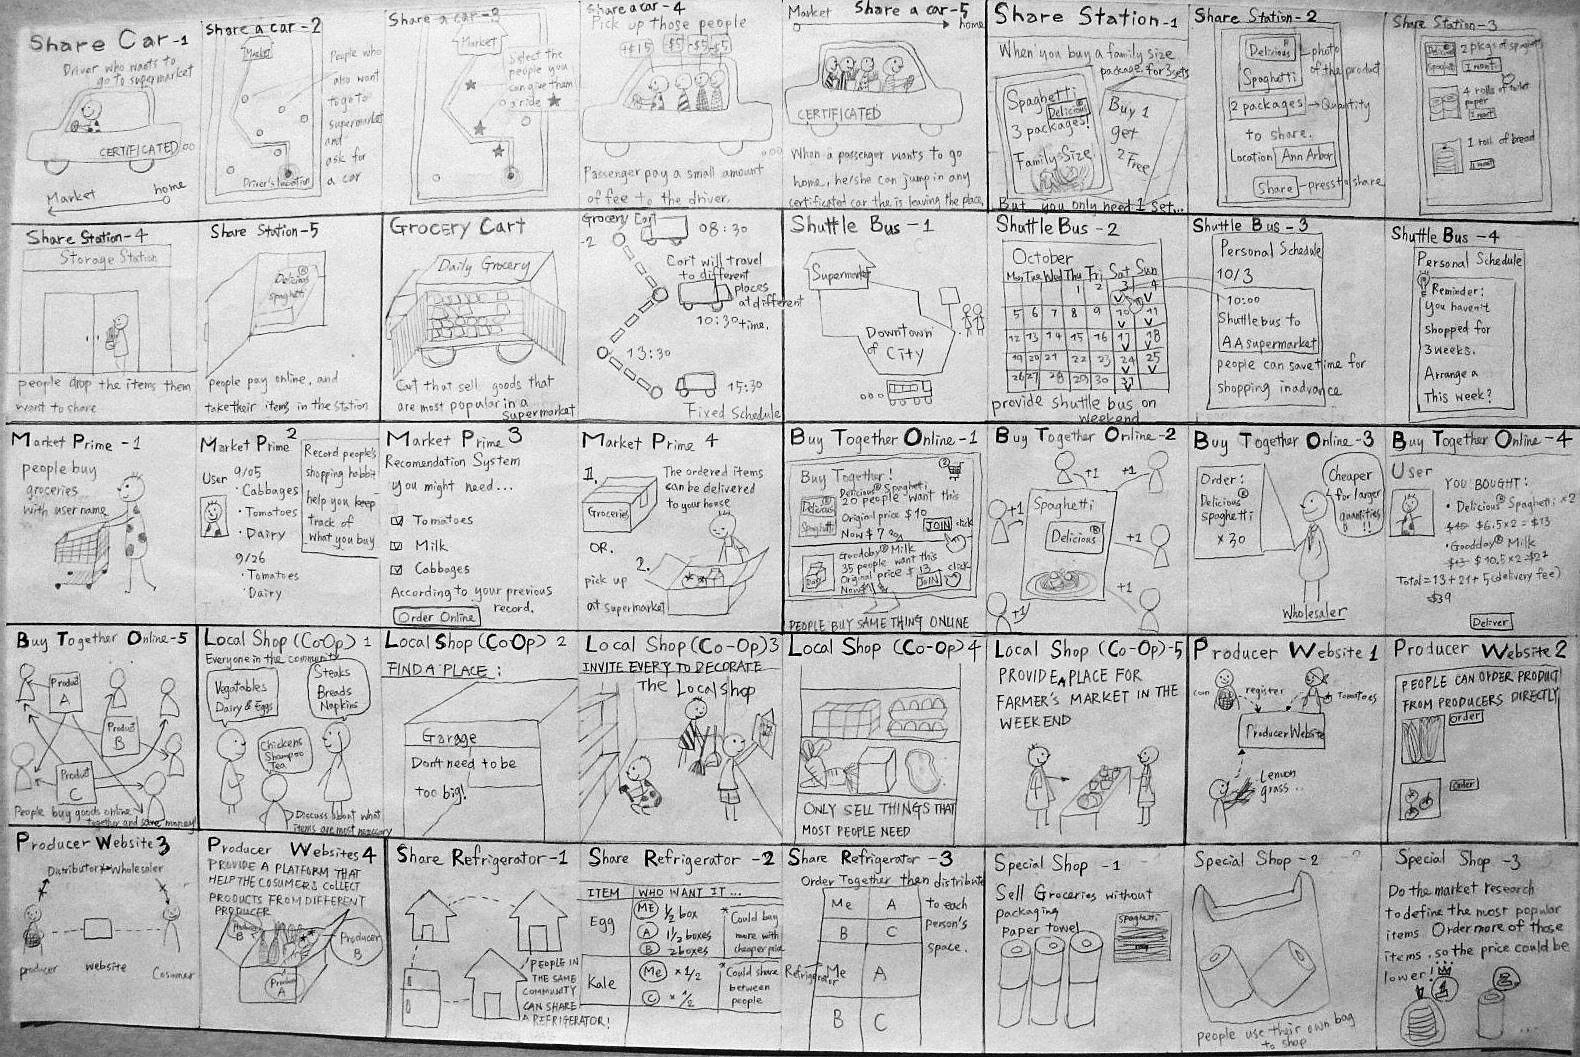 Share Car-1
Driver who wants to
go to supermarket
CERTIFICATED
Market
home
Share a car-2
Market
People who
also want
to go to
supermarket
and
ask for
a car
Driver's location
Share a car-3
Market
Select the
people you
can give them
a ride
Share a car-4
Pick up those people
+$15 -$5 -$5 -$5
Passenger pay a small amount
of fee to the driver.
Market
Share a car-5
home
CERTIFICATED
When a passenger wants to go
home, he/she can jump in any
certificated car the is leaving the place.
Share Station-1
When you buy a family size
package for 3 sets
Spaghetti
Delicious
3 packages!
Family Size
Buy 1
get
2 Free
But you only need 1 set...
Share Station-2
Delicious®
Spaghetti
photo
of the product
2 packages → Quantity
to share.
Location Ann Arbor
Share press to share
Share Station-3
Delicious
Spaghetti
2 pkgs of spaghetti
I want
4 rolls of toilet
paper
I want
1 roll of bread
I want
Share Station-4
Storage Station
people drop the items them
want to share
Share Station-5
Delicious®
Spaghetti
People pay online, and
take their items in the station
Grocery Cart
Daily Grocery
Cart that sell goods that
are most popular in a
supermarket
Grocery Cart
-2
08:30
Cart will travel
to different
places
at different
time.
10:30
13:30
15:30
Fixed Schedule
Shuttle Bus - 1
Supermarket
Downtown
of City
Shuttle Bus - 2
October
Mon Tue Wed Thu Fri Sat Sun
1 2 3 4
5 6 7 8 9 10 11
12 13 14 15 16 17 18
19 20 21 22 23 24 25
26 27 28 29 30 31
provide shuttle bus on
weekend
Shuttle Bus - 3
Personal Schedule
10/3
10:00
Shuttle bus to
AA supermarket
people can save time for
shopping in advance
Shuttle Bus - 4
Personal Schedule
Reminder:
You haven't
shopped for
3 weeks.
Arrange a
This week?
Market Prime -1
people buy
groceries
with user name
Market Prime 2
User
9/05
· Cabbages
· Tomatoes
· Dairy
9/26
· Tomatoes
· Dairy
Record people's
shopping hobbit
help you keep
track of
what you buy
Market Prime 3
Recomendation System
You might need...
Tomatoes
Milk
Cabbages
According to your previous
record.
Order Online
Market Prime 4
1.
Groceries
The ordered items
can be delivered
to your house
OR.
2.
pick up
at supermarket
Buy Together Online-1
Buy Together!
Delicious
Spaghetti
Delicious® Spaghetti
20 people want this
Original price $10
Now $7
JOIN click
Goodday® Milk
35 people want this
Original price $13
JOIN click
PEOPLE BUY SAME THING ONLINE
Buy Together Online-2
+1 +1
+1
Spaghetti
Delicious®
+1
+1 +1
Buy Together Online-3
Order:
Delicious®
Spaghetti
× 30
Cheaper
for larger
quantities
!!
Wholesaler
Buy Together Online -4
User
YOU BOUGHT:
· Delicious® Spaghetti ×2
$10 $6.5×2 = $13
· Goodday® Milk
$13 $10.5×2 = $21
Total = 13+21+5 (delivery fee)
$39
Deliver
Buy Together Online-5
Product
A
Product
B
Product
C
People buy goods online
together and save money
Local Shop (Co-Op) 1
Everyone in the community
Vegatables
Dairy & Eggs
Steaks
Breads
Napkins
Chickens
Shampoo
Tea
Discuss about what
items are most necessary
Local Shop (Co-Op) 2
FIND A PLACE:
Garage
Don't need to be
too big!
Local Shop (Co-Op) 3
INVITE EVERY TO DECORATE
The Local shop
Local Shop (Co-Op) 4
ONLY SELL THINGS THAT
MOST PEOPLE NEED
Local Shop (Co-Op)-5
PROVIDE A PLACE FOR
FARMER'S MARKET IN THE
WEEKEND
Producer Website 1
corn
register
Tomatoes
Producer Website
Lemon
grass..
Producer Website 2
PEOPLE CAN ORDER PRODUCT
FROM PRODUCERS DIRECTLY
order
order
Producer Website 3
Distributor Wholesaler
producer
website
Cosumer
Producer Websites 4
PROVIDE A PLATFORM THAT
HELP THE COSUMERS COLLECT
PRODUCTS FROM DIFFERENT
PRODUCER
Producer
B
Producer
B
Product
A
Share Refrigerator-1
PEOPLE IN
THE SAME
COMMUNITY
CAN SHARE
A REFRIGERATOR!
Share Refrigerator -2
ITEM WHO WANT IT...
Egg
Me 1/2 box
A 1 1/2 boxes
B 2 boxes
* Could buy
more with
cheaper price
Kale
Me × 1/2
C × 1/2
* Could share
between
people
Share Refrigerator -3
Order Together then distribute
to each
person's
space.
Me A
B C
Refrigerator
Me A
B C
Special Shop -1
Sell Groceries without
packaging
paper towel
Spaghetti
Special Shop -2
people use their own bag
to shop
Special Shop -3
Do the market research
to define the most popular
items. Order more of those
items, so the price could be
lower!